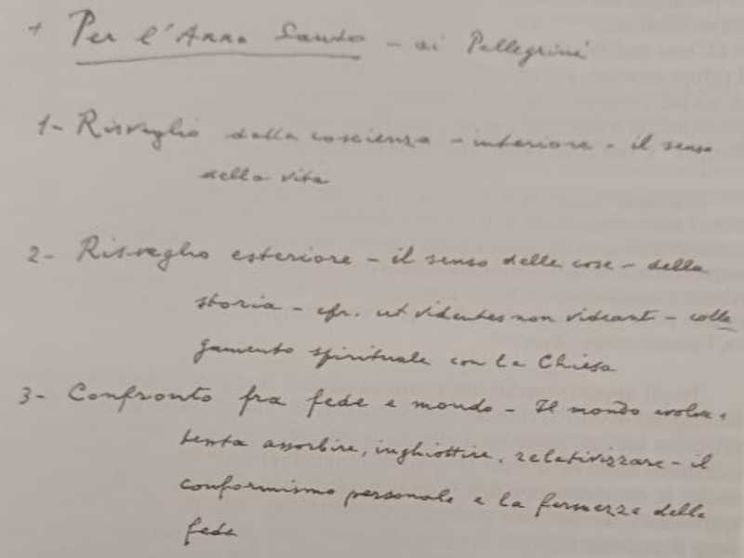 + Per l'Anno Santo - ai Pellegrini
1- Risveglio della coscienza - interiore - il senso
della vita
2- Risveglio esteriore - il senso delle cose - della
storia - cfr. ut videntes non videant - colle
gamento spirituale con la Chiesa
3- Confronto fra fede e mondo - Il mondo
tenta assorbire, inghiottire, relativizzare - il
conformismo personale e la fermezza della
fede